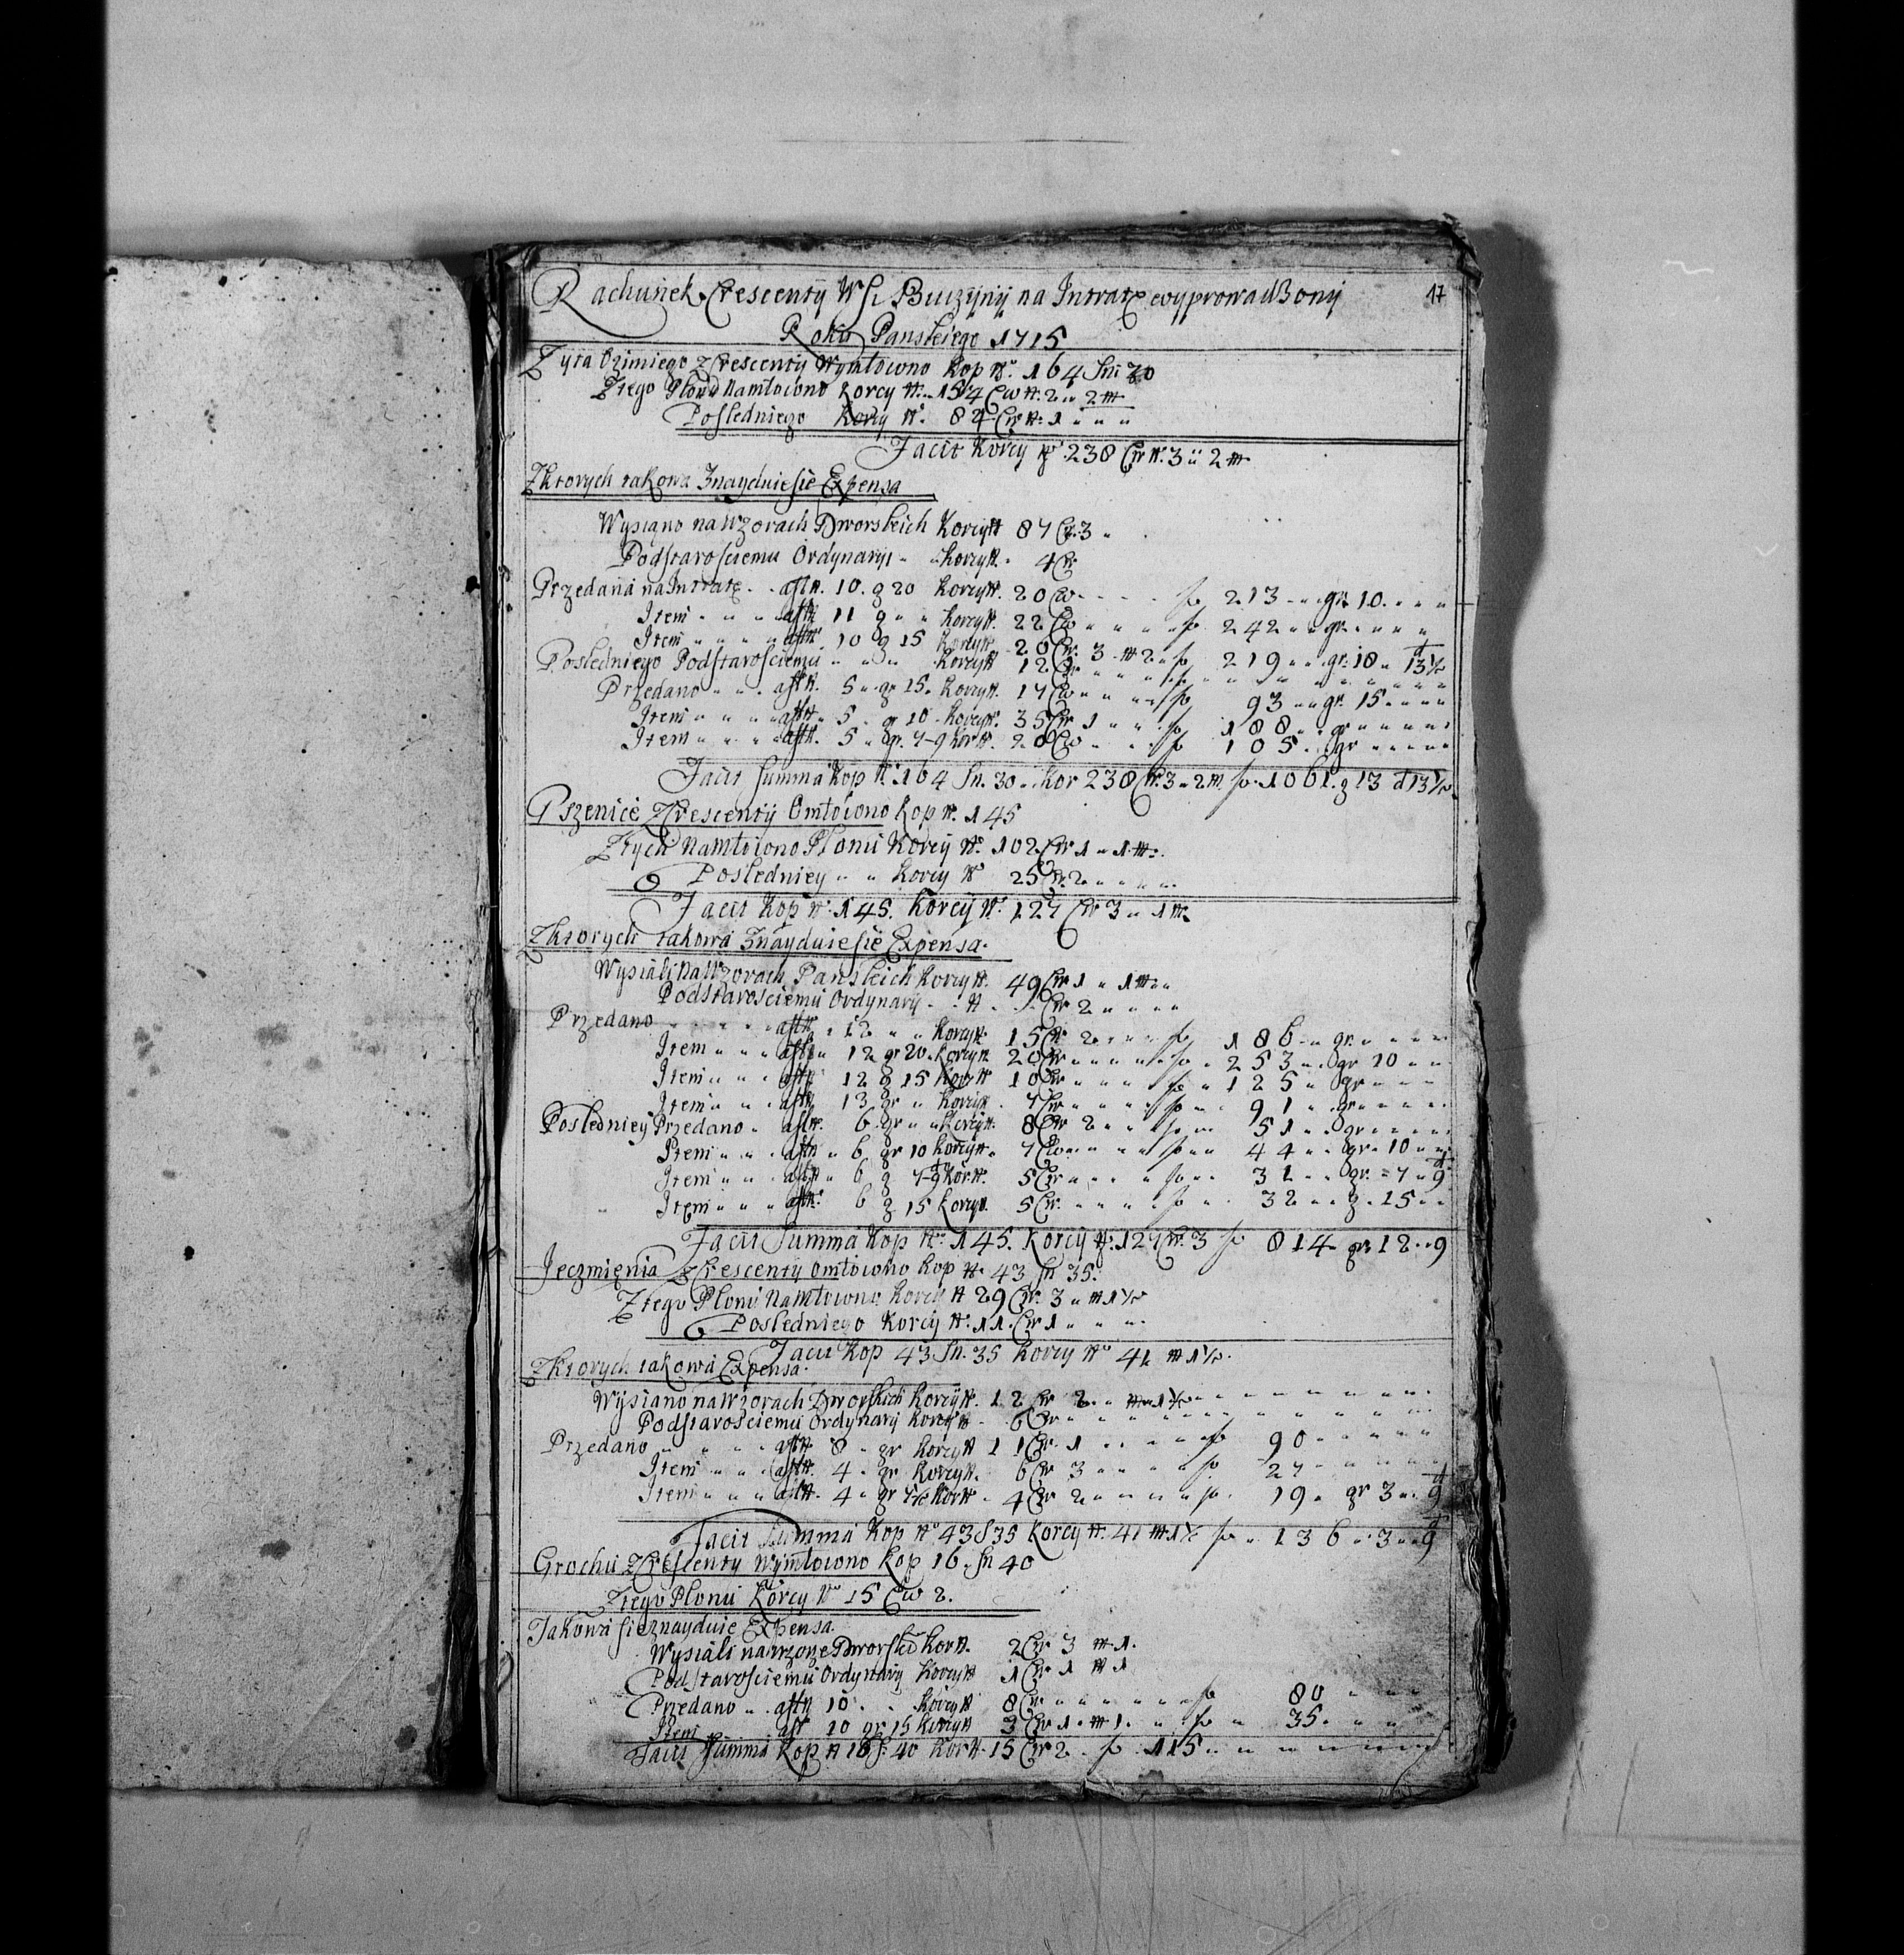 Rachunek Crescenty W Si Buczyny na Intratę wyprowadzony
17
Roku Panskiego 1715
Zyta Ozimiego z Crescenty Wymłocono Kop N. 164 Sn 30
Ztego Plonu Namłocono Korcy N. 154 Cw N. 2 „ 2 m
Posledniego Korcy N. 84 Cw N. 1 „ „ „
Facit Korcy N. 238 Cw N. 3 „ 2 m
Zktorych takowa Znayduie sie Expensa
Wysiano na Wzorach Dworskich Korcy N 87 Cw. 3 „
Podstarosciemu Ordynaryi „ „ Korcy N. 4 Cw
Przedana na Intratę „ a fl N. 10 g 20 Korcy N. 20 Cw „ „ fl 213 „ gr 10 „ „
Item „ „ a fl N 11 g „ „ Korcy N. 22 Cw „ „ fl 242 „ gr „ „
Item „ „ a fl N 10 g 15 Korcy N. 20 Cw. 3 m 2 „ fl 219 „ gr 18 „ d 13½
Posledniego Podstarosciemu „ „ Korcy N 12 Cw „ „
Przedano „ „ a fl N. 5 „ gr 15 „ Korcy N. 17 Cw „ „ fl 93 „ gr 15 „ „
Item „ „ a fl N „ 5 „ gr 10 „ Korcy N. 35 Cw 1 „ „ fl 188 „ gr „ „
Item „ „ a fl N. 5 „ gr. 7-9 Kor N. 20 Cw „ „ fl 105 „ gr „ „
Facit Summa Kop N. 164 Sn. 30 „ Kor 238 Cw. 3 „ 2 m fl. 1061. g 13 d 13½
Pszenice z Crescenty Omłocono Kop N. 145
Ztych Namłocono Plonu Korcy N. 102 Cw 1 „ 1 m
Posledniey „ „ Korcy N 25 Cw. 2 „ „
Facit Kop N. 145. Korcy N. 127 Cw 3 „ 1 m
Zktorych takowa Znayduie sie Expensa.
Wysiali na Wzorach Panskich Korcy N. 49 Cw 1 „ 1 m „
Podstarosciemu Ordynaryi „ „ N „ „ Cw 2 „ „
Przedano „ „ a fl N „ 12 „ „ Korcy N. 15 Cw 2 „ „ fl 186 „ gr „ „
Item „ „ a fl N „ 12 gr 20 „ Korcy N 20 Cw „ „ fl „ 253 „ gr 10 „ „
Item „ „ a fl N 12 g 15 Kor N 10 Cw „ „ fl „ 125 „ gr „ „
Item „ „ a fl N 13 gr „ Korcy N 7 Cw „ „ fl „ 91 „ gr „ „
Posledniey Przedano „ a fl N. 6 gr „ „ Korcy N. 8 Cw 2 „ „ fl „ 51 „ gr „ „
Item „ „ a fl N „ 6 gr 10 Korcy N. 7 Cw „ „ fl „ 44 „ gr 10 „ „
Item „ „ a fl N „ 6 g 7-9 Kor N. 5 Cw „ „ fl „ 31 „ gr „ 7 „ d 9
Item „ „ a fl N. 6 g 15 Korcy N. 5 Cw „ „ fl „ 32 „ g „ 15 „ „
Facit Summa Kop N. 145. Korcy N. 127 Cw. 3 fl 814 gr 12 „ 9
Jeczmienia z Crescenty Omłocono Kop N. 43 Sn 35.
Ztego Plonu Namłocono Korcy N 29 Cw. 3 „ m 1½
Posledniego Korcy N. 11. Cw 1 „ „
Facit Kop 43 Sn. 35 Korcy N 41 m 1½.
Zktorych takowa Expensa.
Wysiano na Wzorach Dworskich Korcy N. 12 Cw 2 „ m 1½ „ „
Podstarosciemu Ordynaryi Korcy N. 6 Cw „ „
Przedano „ „ a fl N. 8 „ gr Korcy N 11 Cw. 1 „ „ fl 90 „ „
Item „ „ a fl N. 4 „ gr Korcy N. 6 Cw 3 „ „ fl 27 „ „
Item „ „ a fl N. 4 „ gr 7½ Kor N „ 4 Cw 2 „ „ fl „ 19 „ gr 3 „ d 9
Facit Summa Kop N 43 S 35 Korcy N. 41 m 1½ fl „ 136 „ 3 „ d 9
Grochu z Crescenty Wymłocono Kop 16 „ Sn 40
Ztego Plonu Korcy N 15 Cw 2.
Takowa sie znayduie Expensa.
Wysiali na wzorze Dworskie Kor N. 2 Cw 3 m 1.
Podstarosciemu Ordynaryi Korcy N 1 Cw 1 m 1
Przedano „ a fl N 10 „ „ Korcy N 8 Cw „ „ fl 80 „ „
Item a fl 10 gr 15 Korcy N 3 Cw 1 „ m 1 „ fl „ 35 „ „
Facit Summa Kop N 16 S. 40 Kor N. 15 Cw 2 „ fl 115 „ „